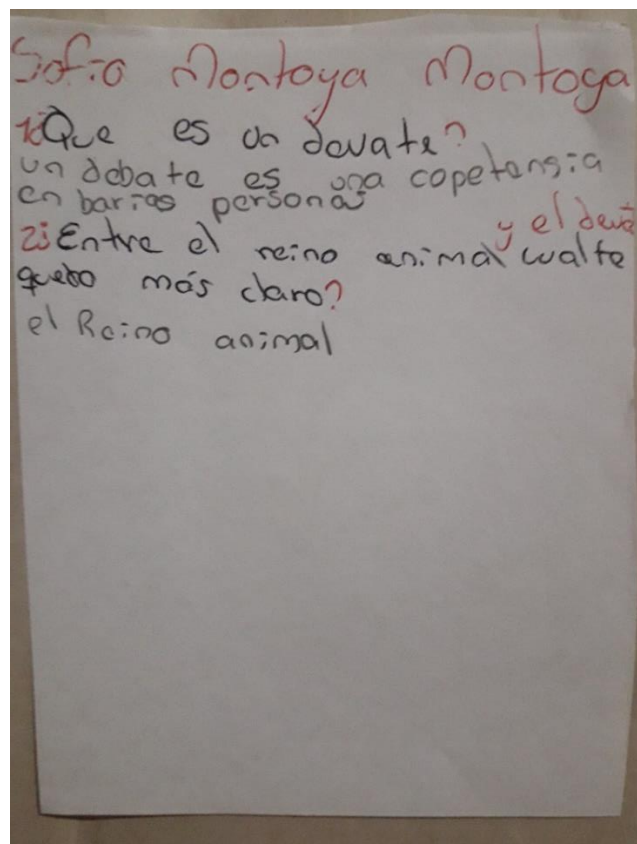 Sofia Montoya Montoya
1¿Que es un devate?
un debate es una copetensia
en barias personas
y el devate
2¿Entre el reino animal cual te
quedo más claro?
el Reino animal